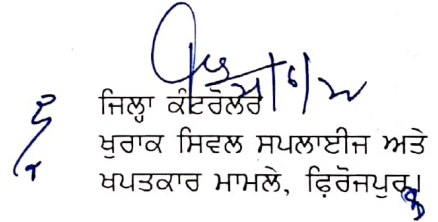 ਜਿਲ੍ਹਾ ਕੰਟਰੋਲਰ
ਖੁਰਾਕ ਸਿਵਲ ਸਪਲਾਈਜ ਅਤੇ
ਖਪਤਕਾਰ ਮਾਮਲੇ, ਫ਼ਿਰੋਜਪੁਰ।